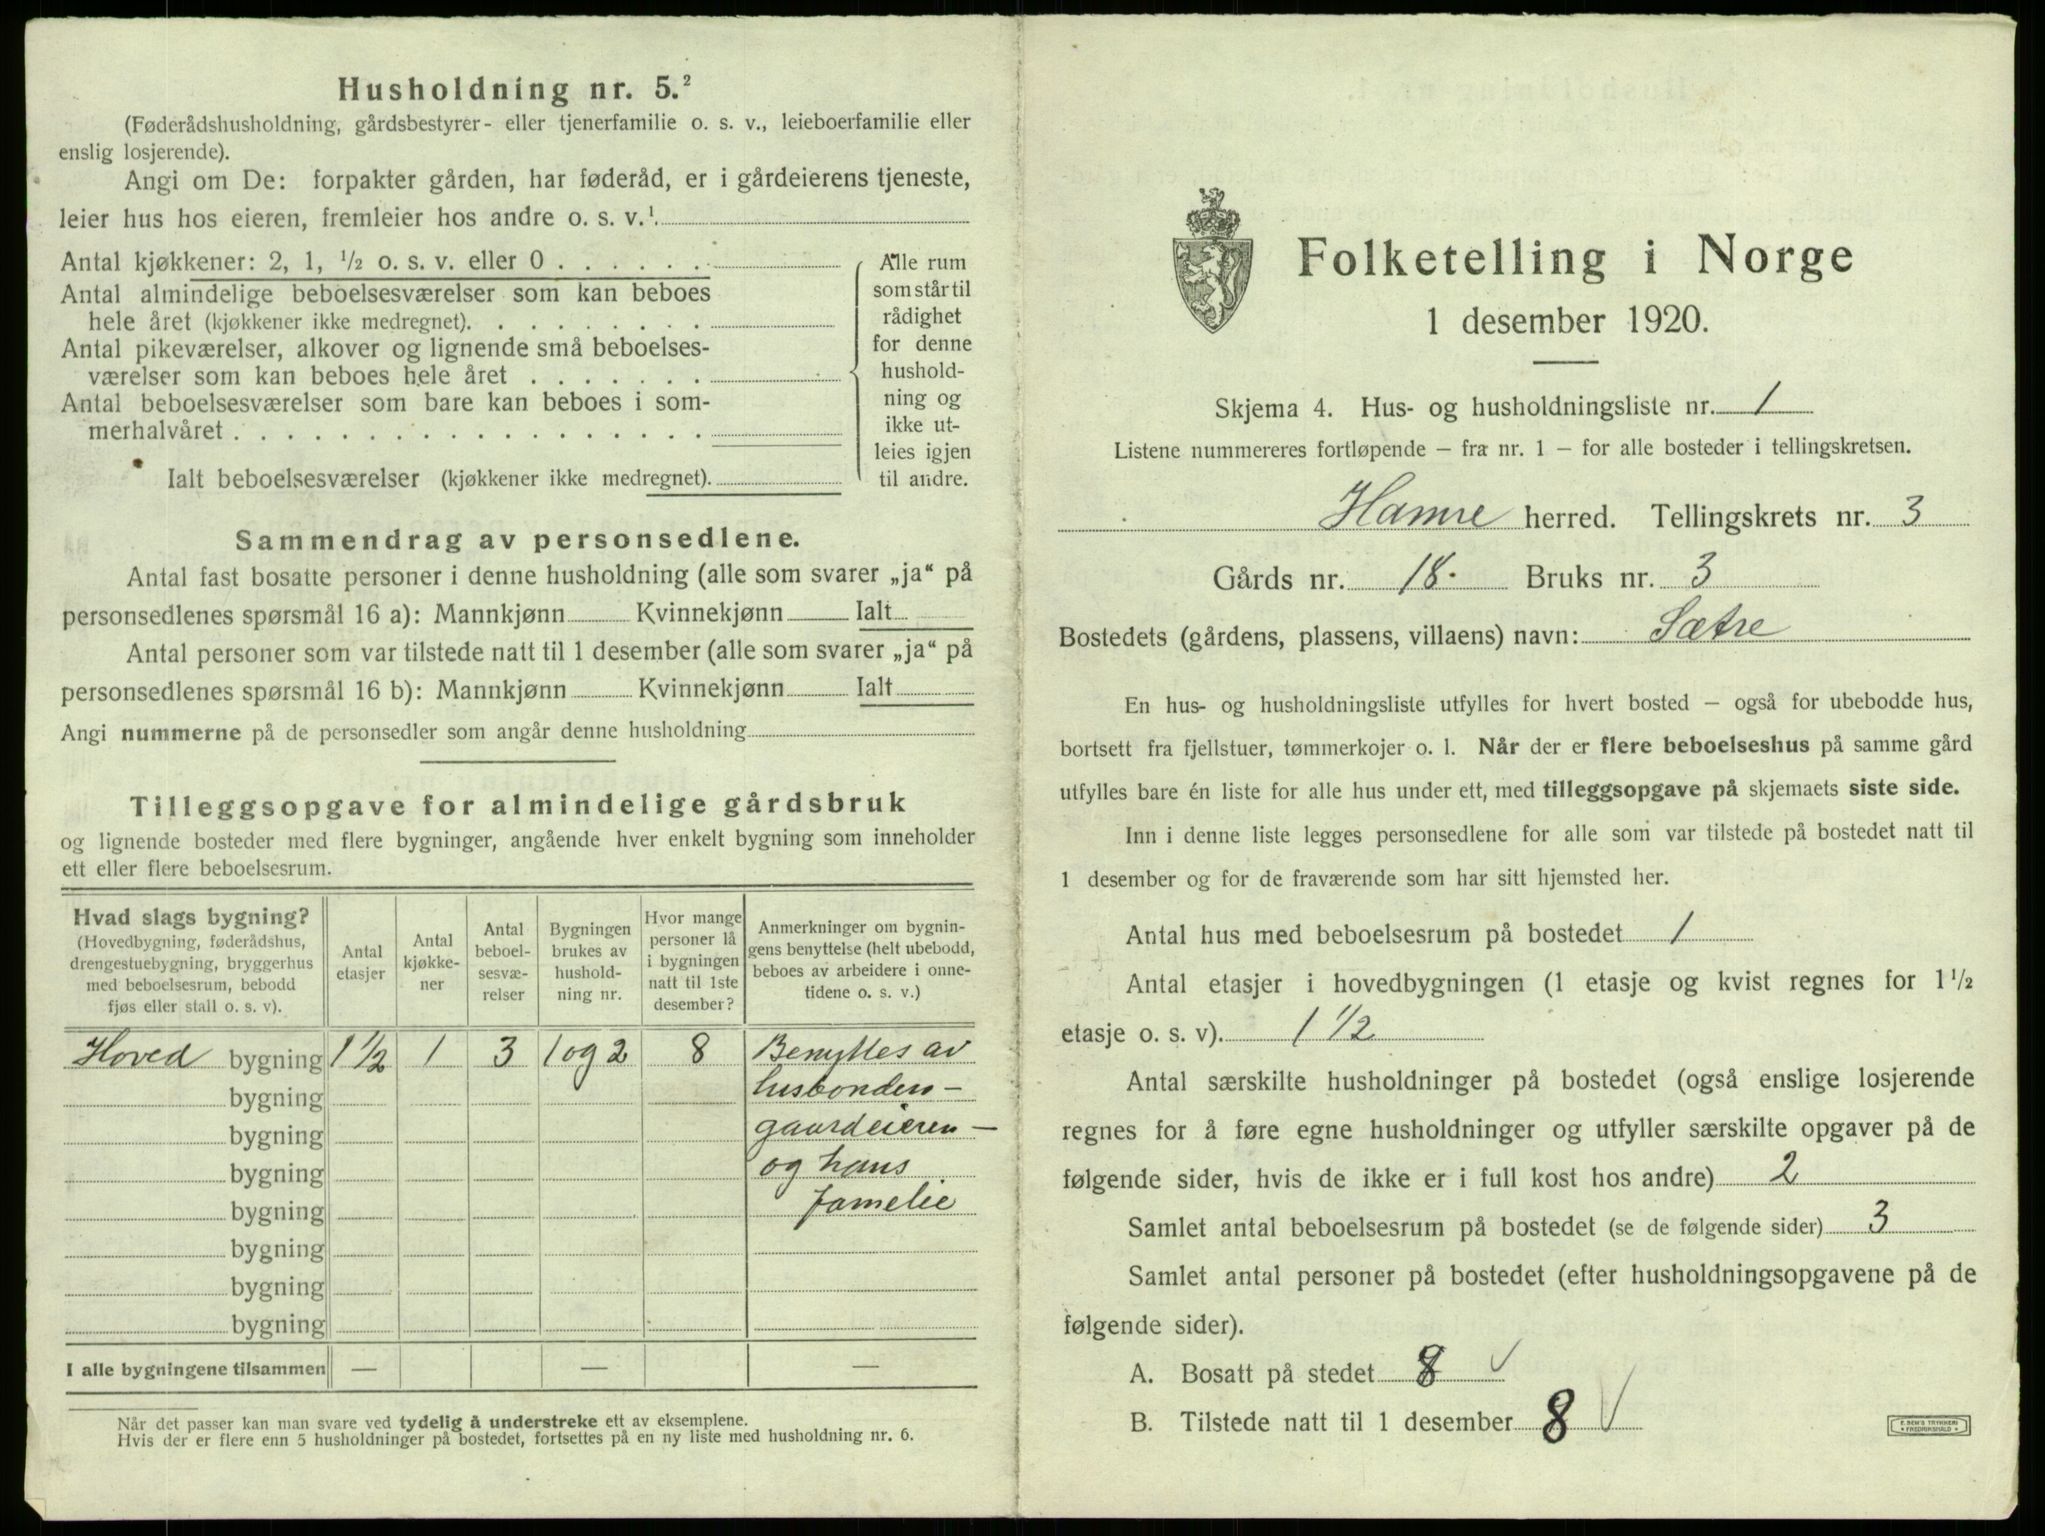 Husholdning nr. 5.²
(Føderådshusholdning, gårdsbestyrer- eller tjenerfamilie o. s. v., leieboerfamilie eller
enslig losjerende).
Angi om De: forpakter gården, har føderåd, er i gårdeierens tjeneste,
leier hus hos eieren, fremleier hos andre o. s. v.¹
Antal kjøkkener: 2, 1, ½ o. s. v. eller 0
Antal almindelige beboelsesværelser som kan beboes
hele året (kjøkkener ikke medregnet).
Antal pikeværelser, alkover og lignende små beboelses-
værelser som kan beboes hele året
Antal beboelsesværelser som bare kan beboes i som-
merhalvåret
Ialt beboelsesværelser (kjøkkener ikke medregnet).
Alle rum
som står til
rådighet
for denne
hushold-
ning og
ikke ut-
leies igjen
til andre.
Sammendrag av personsedlene.
Antal fast bosatte personer i denne husholdning (alle som svarer „ja“ på
personsedlenes spørsmål 16 a): Mannkjønn Kvinnekjønn Ialt
Antal personer som var tilstede natt til 1 desember (alle som svarer „ja“ på
personsedlenes spørsmål 16 b): Mannkjønn Kvinnekjønn Ialt
Angi nummerne på de personsedler som angår denne husholdning
Tilleggsopgave for almindelige gårdsbruk
og lignende bosteder med flere bygninger, angående hver enkelt bygning som inneholder
ett eller flere beboelsesrum.
Hvad slags bygning?
(Hovedbygning, føderådshus,
drengestuebygning, bryggerhus
med beboelsesrum, bebodd
fjøs eller stall o. s. v).
Antal
etasjer
Antal
kjøkke-
ner
Antal
beboel-
sesvæ-
relser
Bygningen
brukes av
hushold-
ning nr.
Hvor mange
personer lå
i bygningen
natt til 1ste
desember?
Anmerkninger om bygnin-
gens benyttelse (helt ubebodd,
beboes av arbeidere i onne-
tidene o. s. v.)
Hoved bygning 1 ½ 1 3 1 og 2 8 Benyttes av
bygning husbonden –
bygning gaardeieren –
bygning og hans
bygning famelie
bygning
bygning
bygning
I alle bygningene tilsammen — — —
Når det passer kan man svare ved tydelig å understreke ett av eksemplene.
Hvis der er flere enn 5 husholdninger på bostedet, fortsettes på en ny liste med husholdning nr. 6.
Folketelling i Norge
1 desember 1920.
Skjema 4. Hus- og husholdningsliste nr. 1
Listene nummereres fortløpende – fra nr. 1 – for alle bosteder i tellingskretsen.
Hamre herred. Tellingskrets nr. 3
Gårds nr. 18. Bruks nr. 3
Bostedets (gårdens, plassens, villaens) navn: Sætre
En hus- og husholdningsliste utfylles for hvert bosted – også for ubebodde hus,
bortsett fra fjellstuer, tømmerkojer o. l. Når der er flere beboelseshus på samme gård
utfylles bare én liste for alle hus under ett, med tilleggsopgave på skjemaets siste side.
Inn i denne liste legges personsedlene for alle som var tilstede på bostedet natt til
1 desember og for de fraværende som har sitt hjemsted her.
Antal hus med beboelsesrum på bostedet 1
Antal etasjer i hovedbygningen (1 etasje og kvist regnes for 1 ½
etasje o. s. v). 1 ½
Antal særskilte husholdninger på bostedet (også enslige losjerende
regnes for å føre egne husholdninger og utfyller særskilte opgaver på de
følgende sider, hvis de ikke er i full kost hos andre) 2
Samlet antal beboelsesrum på bostedet (se de følgende sider) 3
Samlet antal personer på bostedet (efter husholdningsopgavene på de
følgende sider).
A. Bosatt på stedet 8 √
B. Tilstede natt til 1 desember 8 √
E. SEM'S TRYKKERI
FREDRIKSHALD